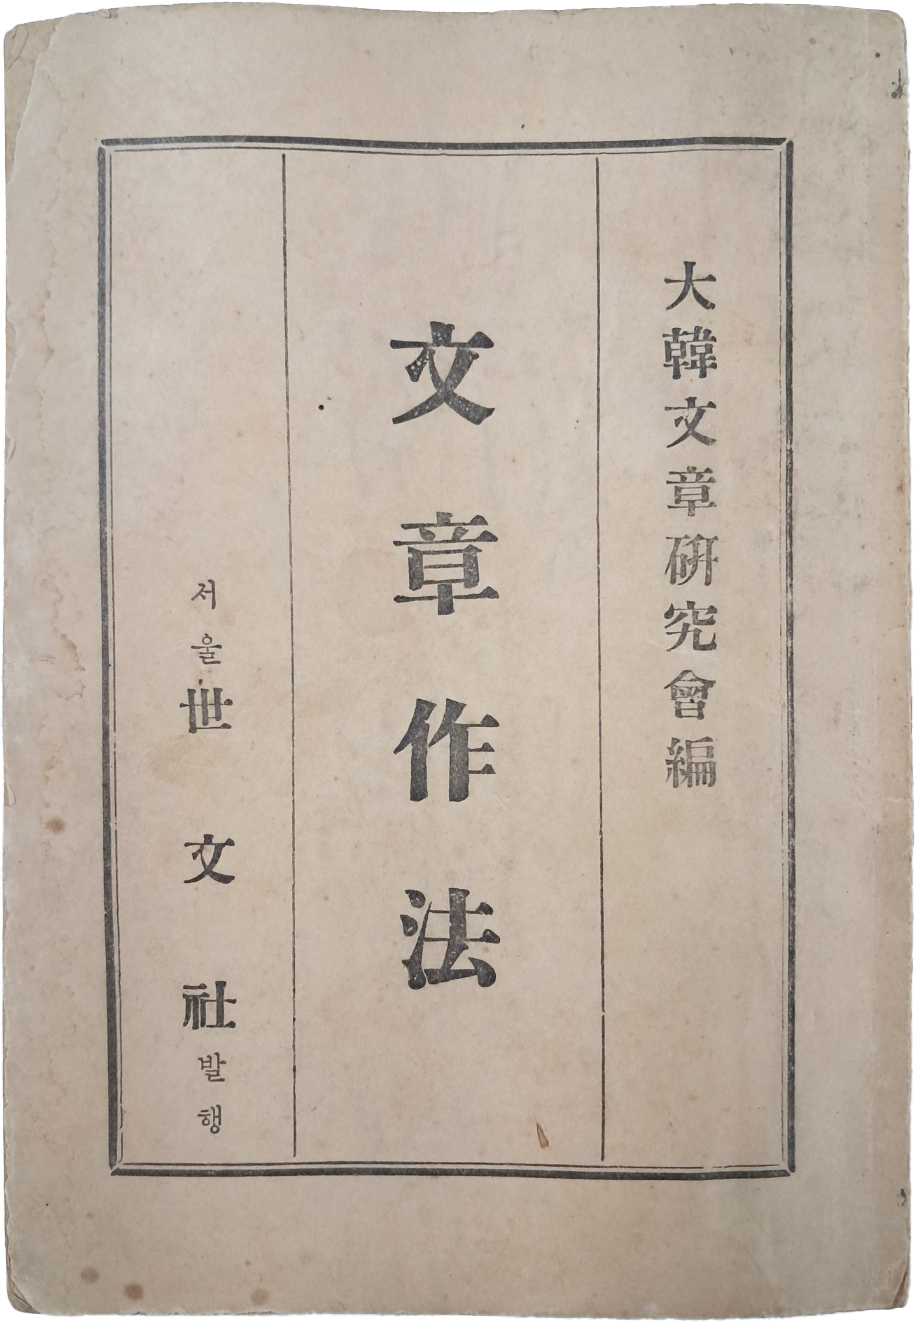 大韓文章硏究會編
文章作法
서울世文社발행